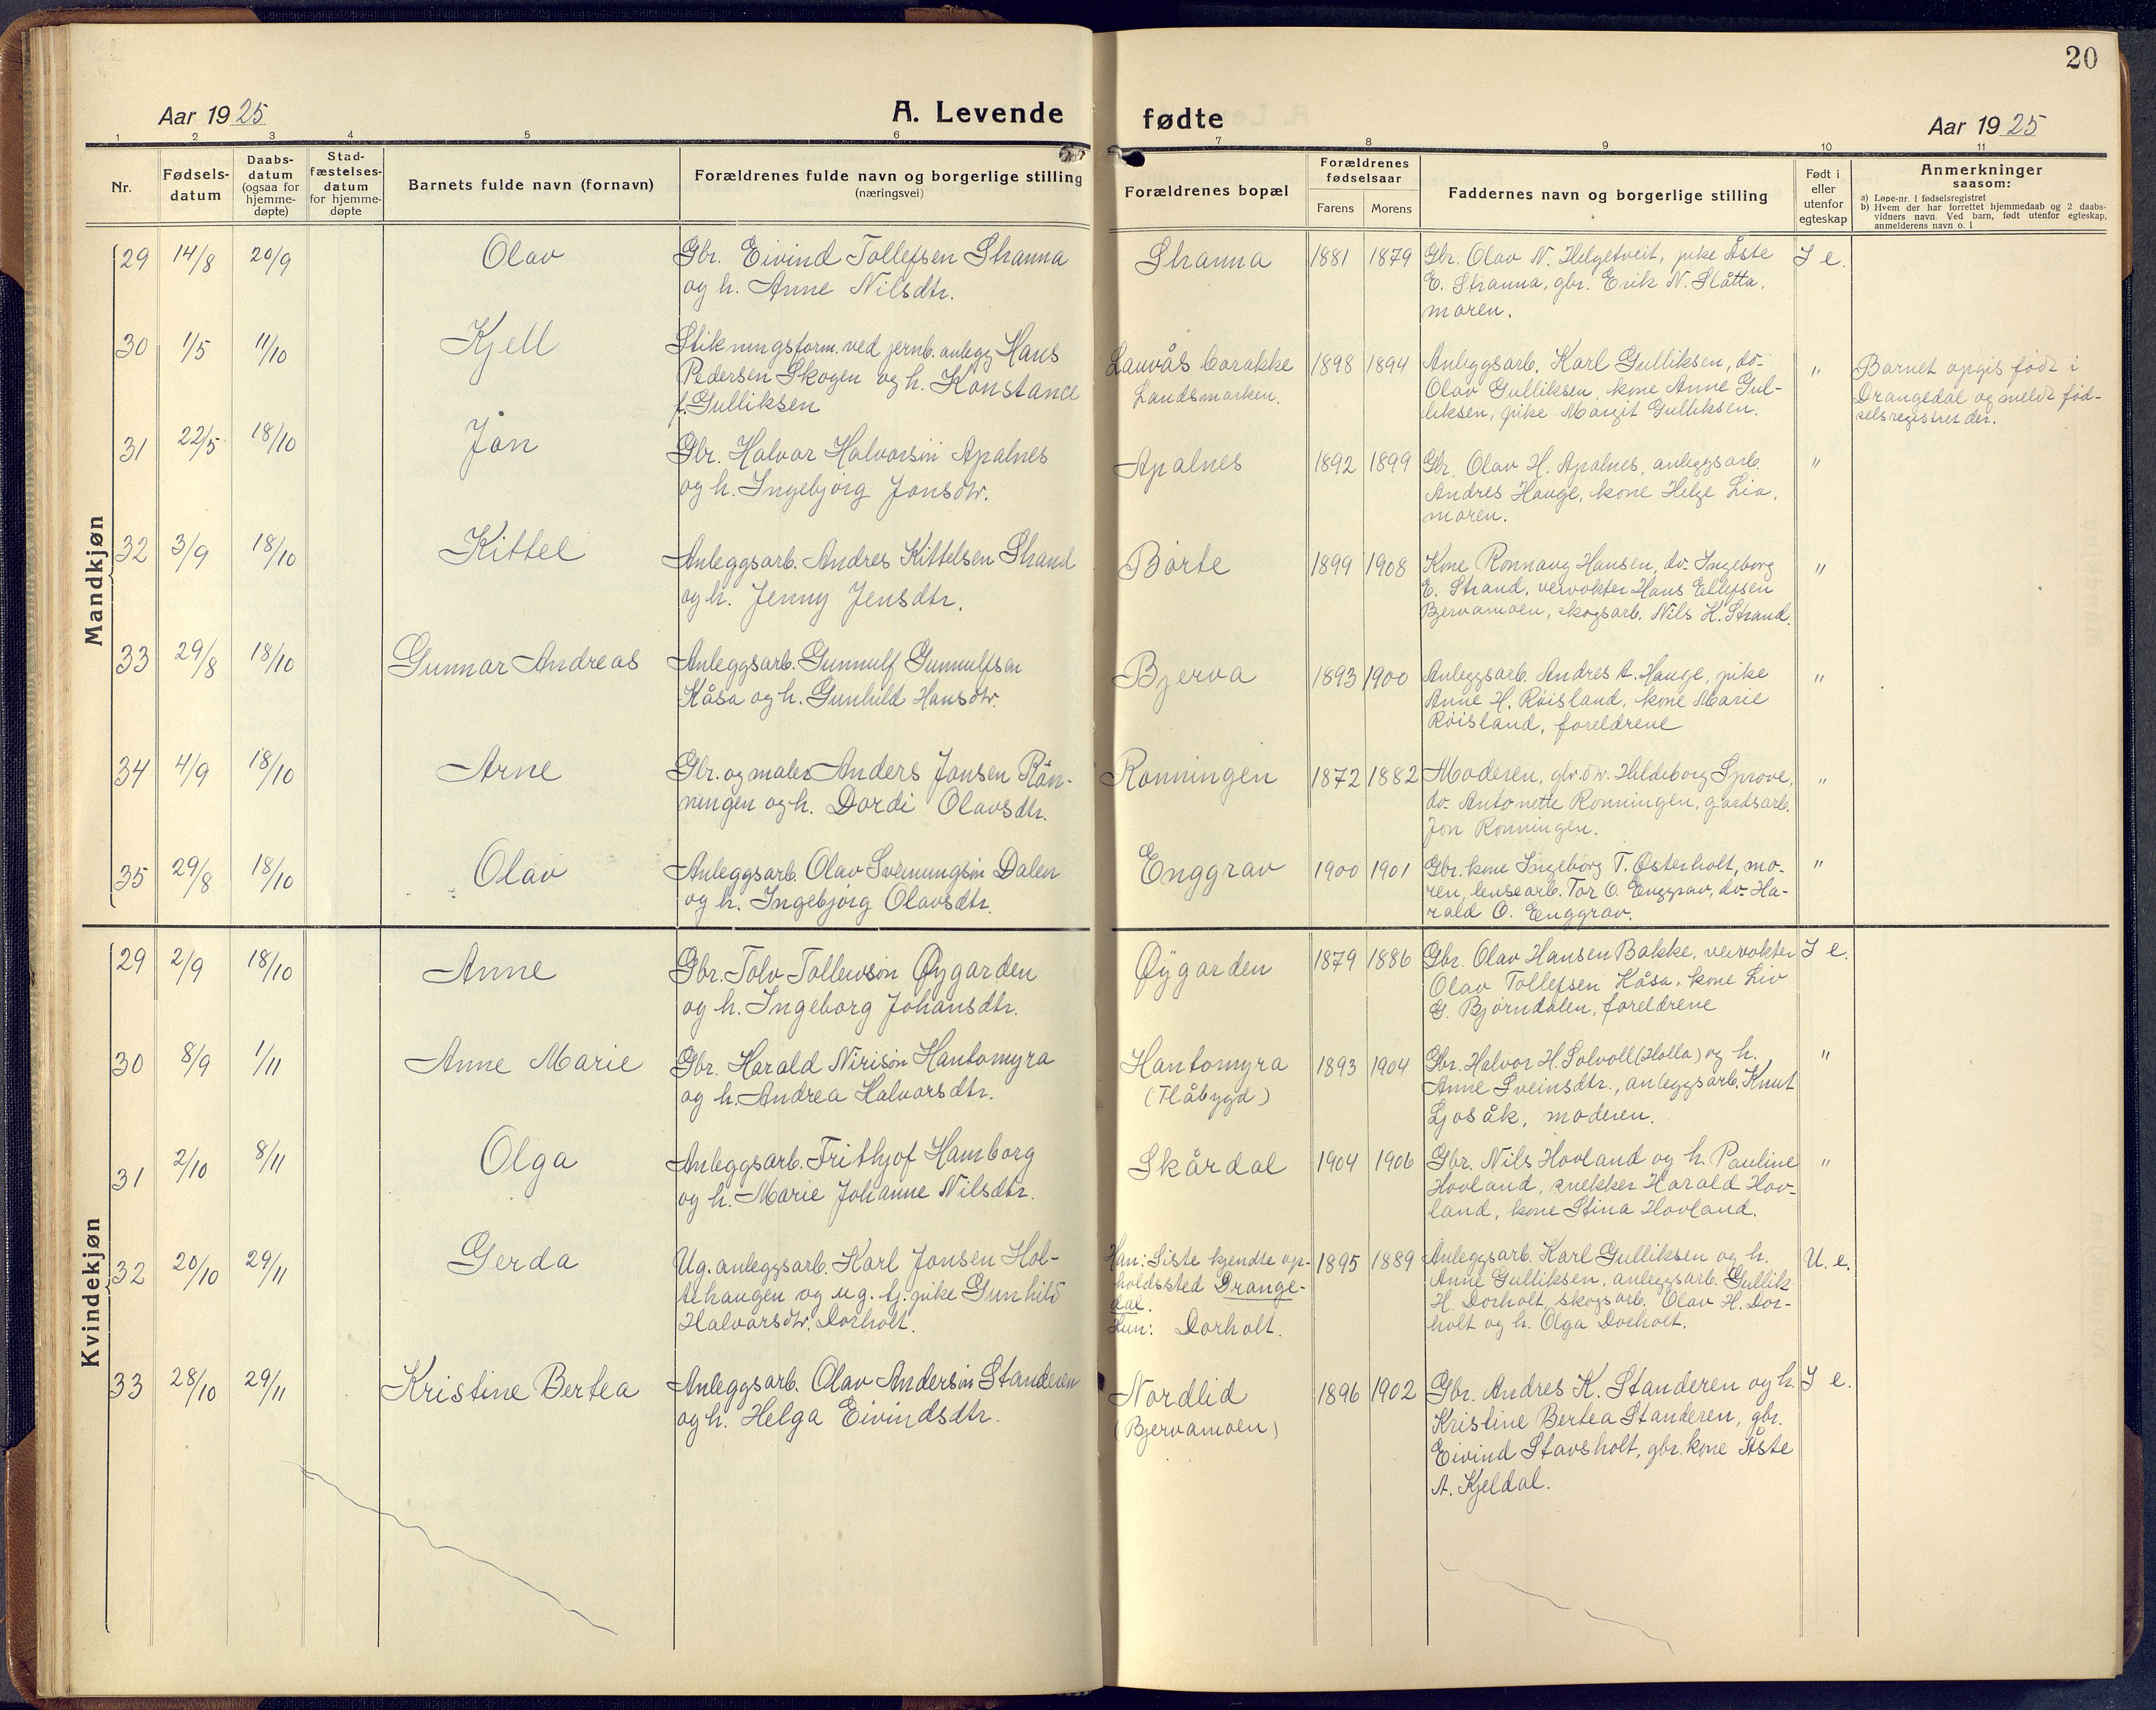 20
Aar 1925
A. Levende fødte
Aar 1925
1 2 3 4 5 6 7 8 9 10 11
Nr.
Fødsels-
datum
Daabs-
datum
(ogsaa for
hjemme-
døpte)
Stad-
fæstelses-
datum
for hjemme-
døpte
Barnets fulde navn (fornavn)
Forældrenes fulde navn og borgerlige stilling
(næringsvei)
Forældrenes bopæl
Forældrenes
fødselsaar
Farens Morens
Faddernes navn og borgerlige stilling
Født i
eller
utenfor
egteskap
Anmerkninger
saasom:
a) Løpe-nr. i fødselsregistret
b) Hvem der har forrettet hjemmedaab og 2 daabs-
vidners navn. Ved barn, født utenfor egteskap,
anmelderens navn o. l
Mandkjøn
29 14/8 20/9 Olav
Gbr. Eivind Tollefsen Stranna
og h. Anne Nilsdtr.
Stranna 1881 1879
Gbr. Olav N. Helgetveit, pike Åste
E. Stranna, gbr. Erik N. Slåtta,
moren.
I e.
30 1/5 11/10 Kjell
Stikningsform. ved jernb. anlegg Hans
Pedersen Skogen og h. Konstance
f. Gulliksen
Lauvås barakke
Landsmarken.
1898 1894
Anleggsarb. Karl Gulliksen, do-
Olav Gulliksen, kone Anne Gul-
liksen, pike Margit Gulliksen.
"
Barnet opgis født i
Drangedal og meldt fød-
selsregistret der.
31 22/5 18/10 Jon
Gbr. Halvor Halvorson Apalnes
og h. Ingebjørg Jonsdtr.
Apalnes 1892 1899
Gbr. Olav H. Apalnes, anleggsarb.
Andres Hauge, kone Helge Lia,
moren.
"
32 3/9 18/10 Kittel
Anleggsarb. Andres Kittelsen Strand
og h. Jenny Jensdtr.
Børte 1899 1908
Kone Rønnaug Hansen, do. Ingeborg
E. Strand, veivokter Hans Ellefsen
Bjervamoen, skogsarb. Nils K. Strand.
"
33 29/8 18/10 Gunnar Andreas
Anleggsarb. Gunnulf Gunnulfson
Kåsa og h. Gunhild Hansdtr.
Bjerva 1893 1900
Anleggsarb. Andres A. Hauge, pike
Anne H. Røisland, kone Marie
Røisland, foreldrene
"
34 4/9 18/10 Arne
Gbr. og maler Anders Jonsen Røn-
ningen og h. Dordi Olavsdtr.
Rønningen 1872 1882
Moderen, gbr. dtr. Hildeborg Sprove,
do- Antonette Rønningen, gårdsarb.
Jon Rønningen.
"
35 29/8 18/10 Olav
Anleggsarb. Olav Sveinungson Dalen
og h. Ingebjørg Olavsdtr.
Enggrav 1900 1901
Gbr. kone Ingeborg T. Østerholt, mo-
ren, lensearb. Tor O. Enggrav, do- Ha-
rald O. Enggrav.
"
Kvindekjøn
29 2/9 18/10 Anne
Gbr. Tolv Tollevson Øygarden
og h. Ingeborg Johansdtr.
Øygarden 1879 1886
Gbr. Olav Hansen Bakke, veivokter
Olav Tollefsen Kåsa, kone Liv
G. Bjørndalen, foreldrene
I e.
30 8/9 1/11 Anne Marie
Gbr. Harald Nirison Hantomyra
og h. Andrea Halvorsdtr.
Hantomyra
(Flåbygd)
1893 1904
Gbr. Halvor H. Solvoll (Holla) og h.
Anne Sveinsdtr., anleggsarb. Knut
Ljosåk, moderen.
"
31 2/10 8/11 Olga
Anleggsarb. Frithjof Hamborg
og h. Marie Johanne Nilsdtr.
Skårdal 1904 1906
Gbr. Nils Hovland og h. Pauline
Hovland, snekker Harald Hov-
land, kone Stina Hovland.
"
32 20/10 29/11 Gerda
Ug. anleggsarb. Karl Jonsen Hol-
tehaugen og ug. tj. pike Gunhild
Halvorsdtr. Dorholt.
Han: Siste kjendte op-
holdssted Drange-
dal.
Hun: Dorholt.
1895 1889
Anleggsarb. Karl Gulliksen og h.
Anne Gulliksen, anleggsarb. Gullik
H. Dorholt, skogsarb. Olav H. Dor-
holt og h. Olga Dorholt.
U. e.
33 28/10 29/11 Kristine Bertea
Anleggsarb. Olav Anderson Standeren
og h. Helga Eivindsdtr.
Nordlid
(Bjervamoen)
1896 1902
Gbr. Andres K. Standeren og h.
Kristine Bertea Standeren, gbr.
Eivind Stavsholt, gbr. kone Åste
A. Kjeldal.
I e.